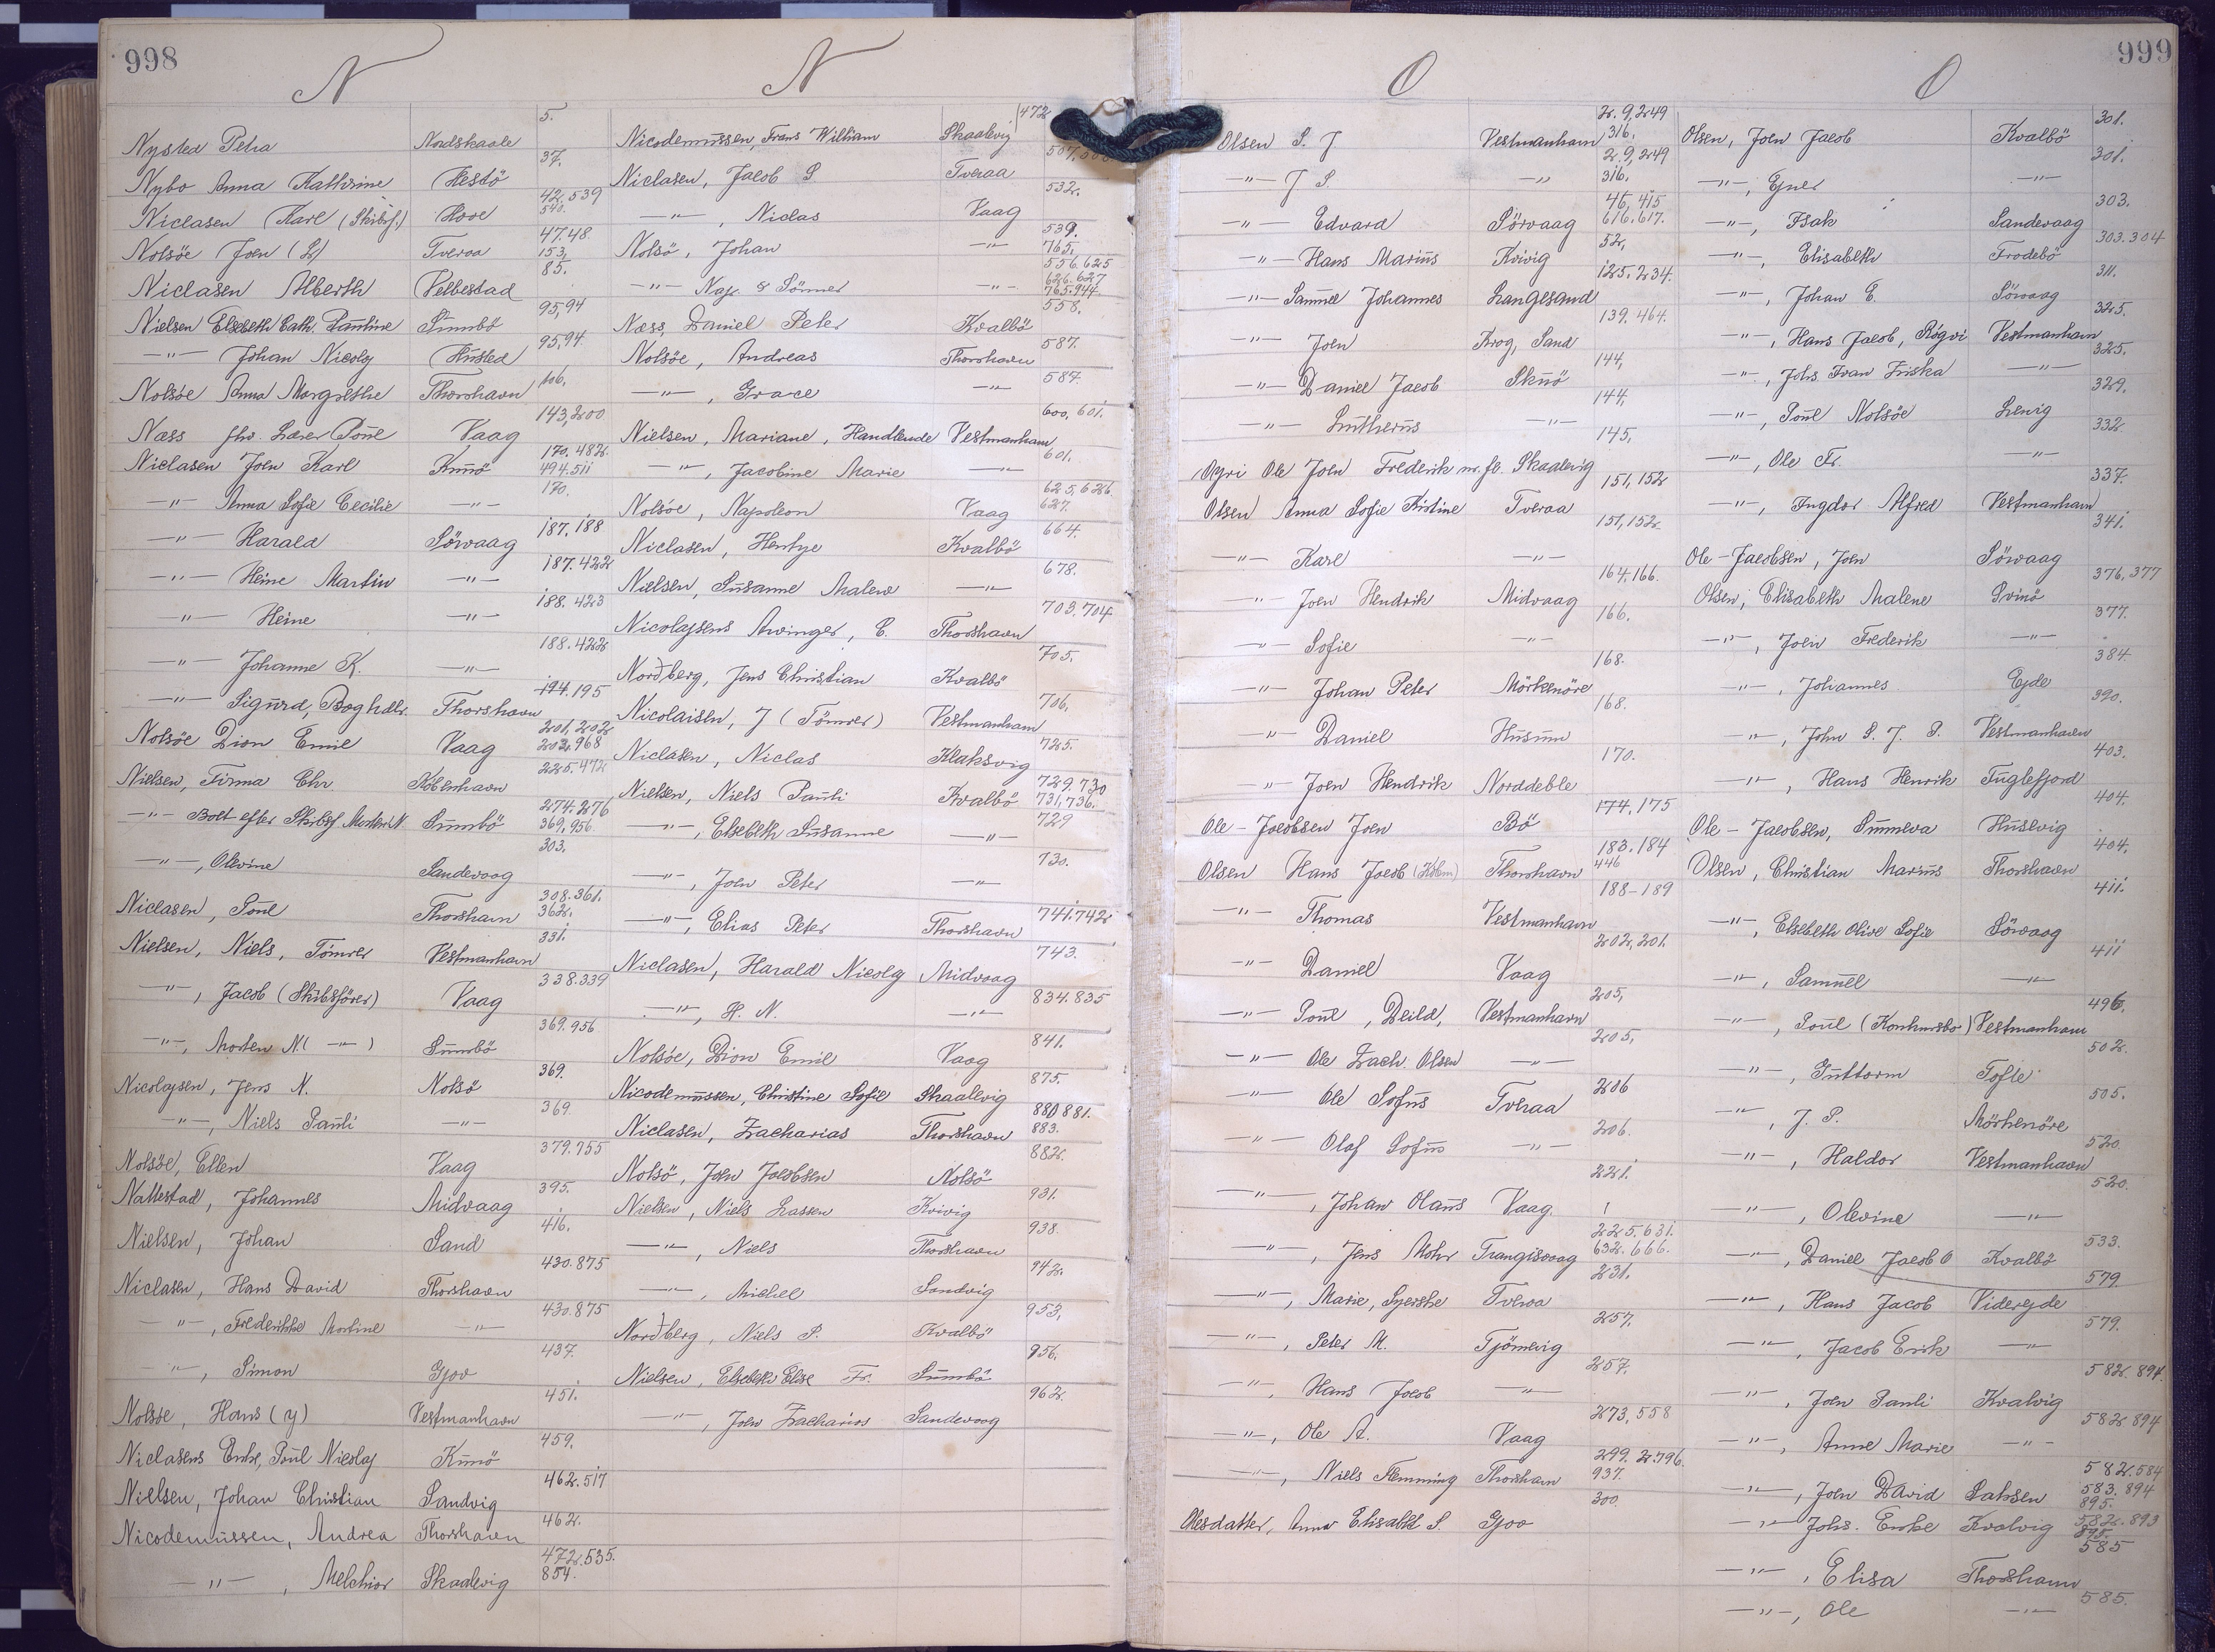 998
N
N
Nysted Petra Nordskaale 5.
Nybo Anna Kathrine Hestö 37.
Niclasen Karl (Skibsf.) Hove 42.539 540.
Nolsöe Joen (L) Tveraa 47.48 153,
Niclasen Alberth Velbestad 85.
Nielsen Elsebeth Cath. Pauline Sumbö 95,94
—"— Johan Nicolaj Husted 95,94
Nolsöe Anna Margrethe Thorshavn 106.
Næss fhv. Lærer Poul Vaag 143,200
Niclasen Joen Karl Kunö 170.482 494.511
—"— Anna Sofie Cecilie —"— 170.
—"— Harald Sörvaag 187.188
—"— Heine Martin —"— 187.422
—"— Heine —"— 188.423
—"— Johanne K. —"— 188.422
—"— Sigurd, Boghdlr. Thorshavn 194.195
Nolsöe Dion Emil Vaag 201,202 203.968
Nielsen, Firma Chr. Köbenhavn 225.472
—"— Boet efter Skibsf. Morten N. Sumbö 274.276 369,956
—"—, Olevine Sandevaag 303.
Niclasen, Poul Thorshavn 308.361. 362.
Nielsen, Niels, Tömrer Vestmanhavn 331.
—"—, Jacob (Skibsförer) Vaag 338.339
—"—, Morten N. (—"—) Sumbö 369.956
Nicolajsen, Jens N. Nolsö 369.
—"—, Niels Pauli —"— 369.
Nolsöe, Ellen Vaag 379.755
Nattestad, Johannes Midvaag 395.
Nielsen, Johan Sand 416.
Niclasen, Hans David Thorshavn 430.875
—"—, Frederikke Martine —"— 430.875
—"—, Simon Gjov 437.
Nolsöe, Hans (y) Vestmanhavn 451.
Niclasens Enke, Poul Nicolaj Kunö 459.
Nielsen, Johan Christian Sandvig 462.517
Nicodemussen, Andrea Thorshavn 462.
—"—, Melchior Skaalevig 472.535. 854.
Nicodemussen, Frans William Skaalevig 472
Niclasen, Jacob S. Tveraa 507.
—"—, Niclas Vaag 532.
Nolsö, Johan —"— 539. 765.
—"— Nap. & Sönner —"— 556.625 626.627 765.944.
Næss, Daniel Peter Kvalbö 558.
Nolsöe, Andreas Thorshavn 587.
—"—, Grace —"— 587.
Nielsen, Mariane, Handlende Vestmanhavn 600, 601.
—"—, Jacobine Marie —"— 601.
Nolsöe, Napoleon Vaag 625,626 627.
Niclasen, Hentze Kvalbö 664.
Nielsen, Susanne Malene —"— 678.
Nicolajsens Arvinger, C. Thorshavn 703.704
Norðberg, Jens Christian Kvalbö 705.
Nicolaisen, J (Tömrer) Vestmanhavn 706.
Niclasen, Niclas Klaksvig 725.
Nielsen, Niels Pauli Kvalbö 729.730 731,736.
—"—, Elsebeth Susanne —"— 729
—"—, Joen Peter —"— 730.
—"—, Elias Peter Thorshavn 741.742
Niclasen, Harald Nicolaj Midvaag 743.
—"—, H. N. —"— 834.835
Nolsöe, Dion Emil Vaag 841.
Nicodemussen, Christine Sofie Skaalevig 875.
Niclasen, Zacharias Thorshavn 880 881. 883.
Nolsö, Joen Jacobsen Nolsö 882.
Nielsen, Niels Lassen Kvivig 931.
—"—, Niels Thorshavn 938.
—"—, Michel Sandvig 942.
Norðberg, Niels P. Kvalbö 953.
Nielsen, Elsebeth Elise Fr. Sumbö 956.
—"—, Joen Zacharias Sandevaag 962.
999
O
O
Olsen S. J Vestmanhavn 2.9,249 316.
—"— J S. —"— 2.9,249 316.
—"— Edvard Sörvaag 46,415 616.617.
—"— Hans Marius Kvivig 52,
—"— Samuel Johannes Langesand 125.234.
—"— Joen Krog, Sand 139.464.
—"— Daniel Jacob Skuö 144,
—"— Lutherus —"— 144,
Oyri Ole Joen Frederik m. fl. Skaalevig 145,
Olsen Anna Sofie Kristine Tveraa 151,152
—"— Karl —"— 151,152
—"— Joen Hendrik Midvaag 164.166.
—"— Sofie —"— 166.
—"— Johan Peter Mörkenöre 168.
—"— Daniel Husum 168.
—"— Joen Hendrik Norddeble 170.
Ole-Jacobsen Joen Bö 174,175
Olsen Hans Jacob (Köbm) Thorshavn 183.184 446
—"— Thomas Vestmanhavn 188-189
—"— Daniel Vaag 202,201.
—"— Poul, Deild, Vestmanhavn 205,
—"— Ole Zach. Olsen —"— 205,
—"— Ole Sofus Tveraa 206
—"— Olaf Sofus —"— 206.
—"—, Johan Olaus Vaag 221.
—"—, Jens Mohr Trangisvaag 225,631. 632.666.
—"—, Marie, Syerske Tveraa 231.
—"—, Peter M. Tjörnevig 257.
—"—, Hans Jacob —"— 257.
—"—, Ole A. Vaag 273,558
—"—, Niels Flemming Thorshavn 299.2.796. 937.
Olesdatter, Anna Elisabeth S. Gjov 300.
Olsen, Joen Jacob Kvalbö 301.
—"—, Ejner —"— 301.
—"—, Isak Sandevaag 303.
—"—, Elisabeth Frodebö 303.304
—"—, Johan E. Sörvaag 311.
—"—, Hans Jacob, Rógvi Vestmanhavn 325.
—"—, Johs. Ivan Friska —"— 325.
—"—, Poul Nolsöe Lervig 329.
—"—, Ole Fr. —"— 332.
—"—, Ingdor Alfred Vestmanhavn 337.
Ole-Jacobsen, Joen Sörvaag 341.
Olsen, Elisabeth Malene Svinö 376,377
—"—, Joen Frederik —"— 377.
—"—, Johannes Ejde 384.
—"—, John S. J. P. Vestmanhavn 390.
—"—, Hans Henrik Fuglefjord 403.
Ole-Jacobsen, Sunneva Husevig 404.
Olsen, Christian Marius Thorshavn 404.
—"—, Elsebeth Olive Sofie Sörvaag 411.
—"—, Samuel —"— 411
—"—, Poul (Konkursbo) Vestmanhavn 496.
—"—, Guttorm Tofte 502.
—"—, J. P. Mörkenöre 505.
—"—, Haldor Vestmanhavn 520.
—"—, Olevine —"— 520.
—"—, Daniel Jacob O Kvalbö 533.
—"—, Hans Jacob Viderejde 579.
—"—, Jacob Erik —"— 579.
—"—, Joen Pauli Kvalvig 582.894.
—"—, Anne Marie —"— 582.894
—"—, Joen David Saksen 582.584 583.894 895.
—"— Johs. Enke Kvalvig 582.893 895.
—"—, Elisa Thorshavn 585
—"—, Ole —"— 585.